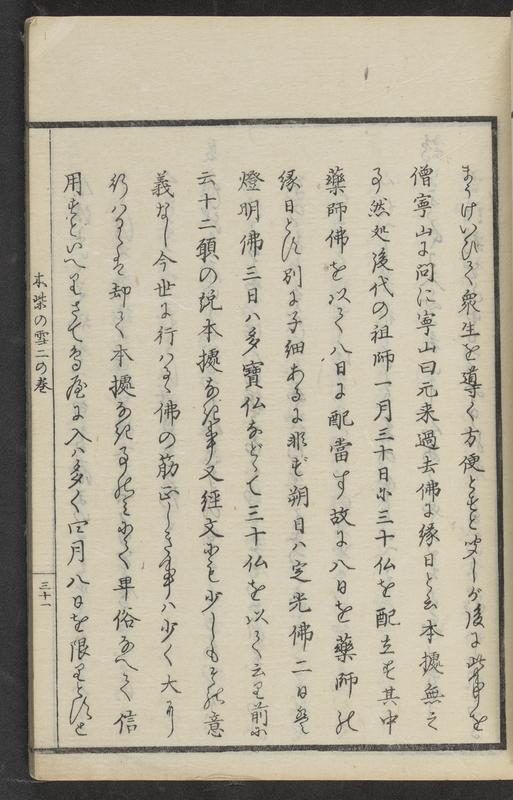 まうけいひて衆生を導く方便とすと聞しが後に此事を
僧寧山に問に寧山曰元来過去佛に縁日と云本據無之
事然処後代の祖師一月三十日に三十仏を配立す其中
薬師佛を以て八日に配當す故に八日を薬師の
縁日とす別に子細あるに非ず朔日ハ定光佛二日ハ
燈明佛三日ハ多寶仏などゝて三十仏を以て云り前に
云十二願の説本據なき事又經文にも少しもその意
義なし今世に行ハるゝ佛の筋正しき事ハ少く大に
行ハるゝは却て本據なき事のミにて卑俗なへて信
用すといへりさて鳥屋に入ハ多く四月八日を限りとすと
本柴の雪二の巻
三十一